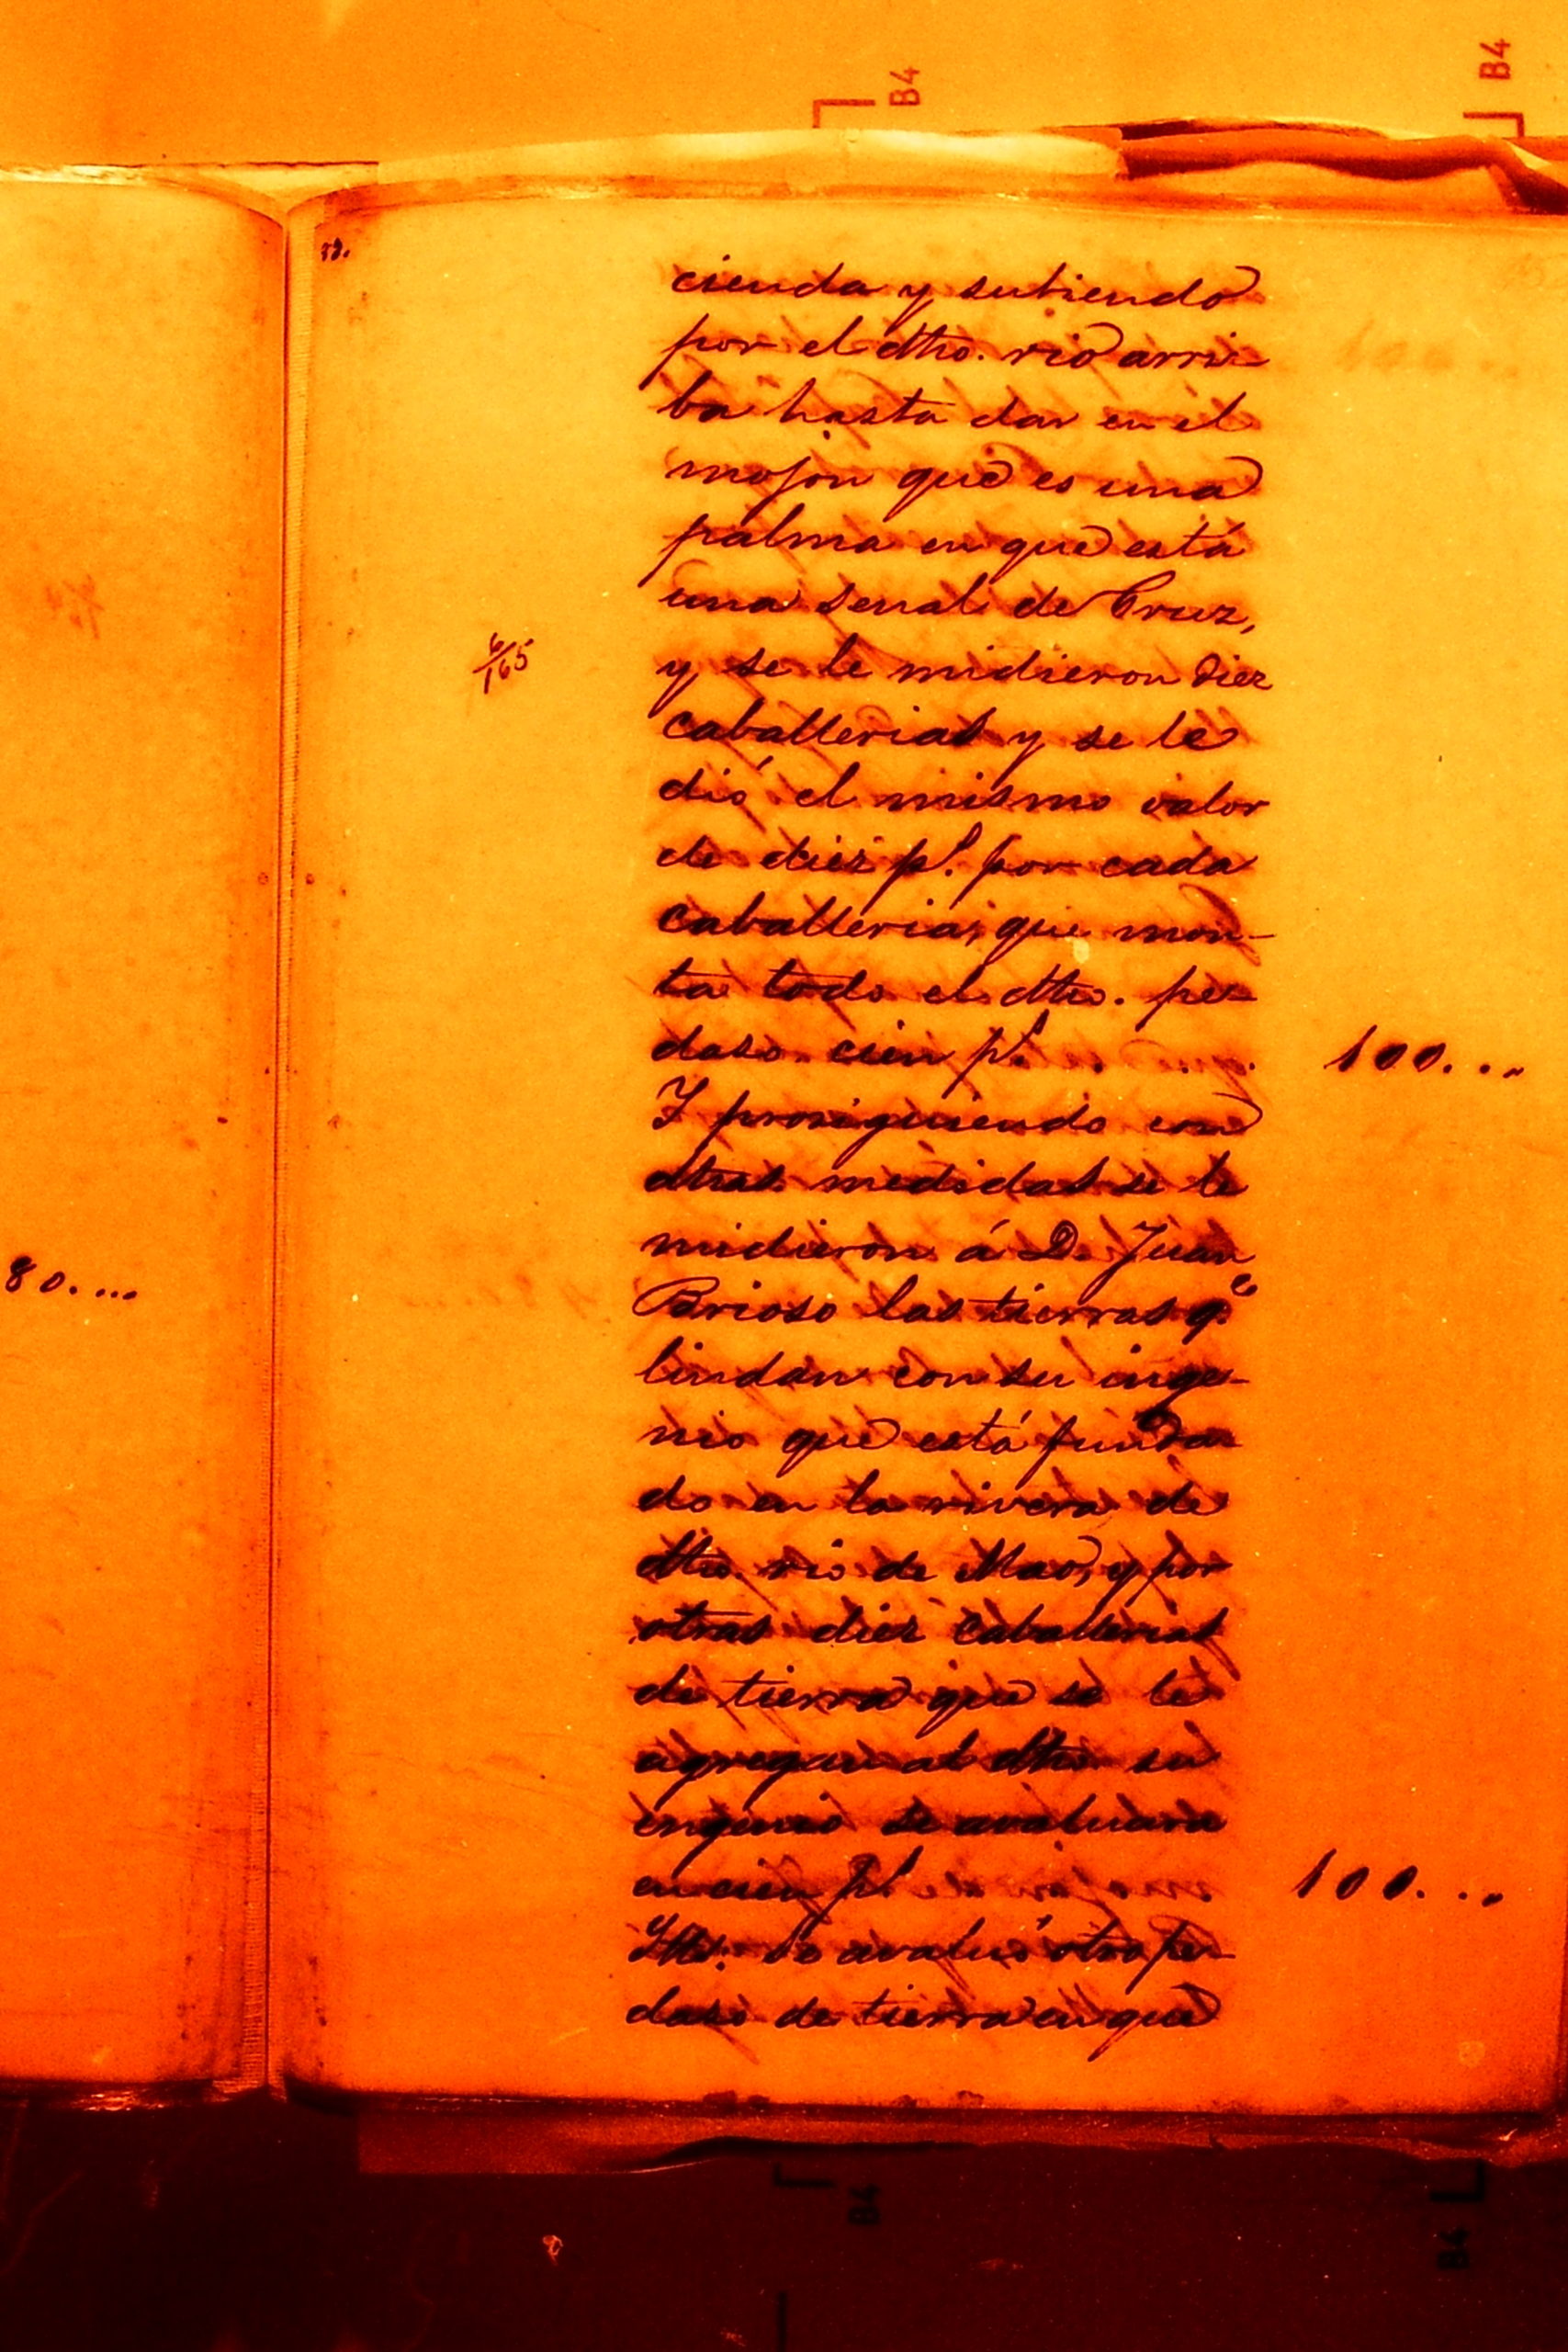 B4
B4
cienda y subiendo
por el dho. rio arri-
ba hasta dar en el
mojon que es una
palma en que está
una senal de Cruz,
6/165
y se le midieron diez
caballerias y se le
dió el mismo valor
de diez ps. por cada
caballeria, que mon-
ta todo el dho. pe-
daso cien ps.
100...
Y prosiguiendo con
dhas. medidas se le
midieron á D. Juan
80....
Brioso las tierras q.e
lindan con su inge-
nio que está funda-
do en la rivera de
dho. rio de Mao, y por
otras diez caballerias
de tierra que se le
agregan al dho. su
ingenio se avaluara
en cien ps.
100...
Yt.: se avaluó otro pe-
daso de tierra en que
B4
B4